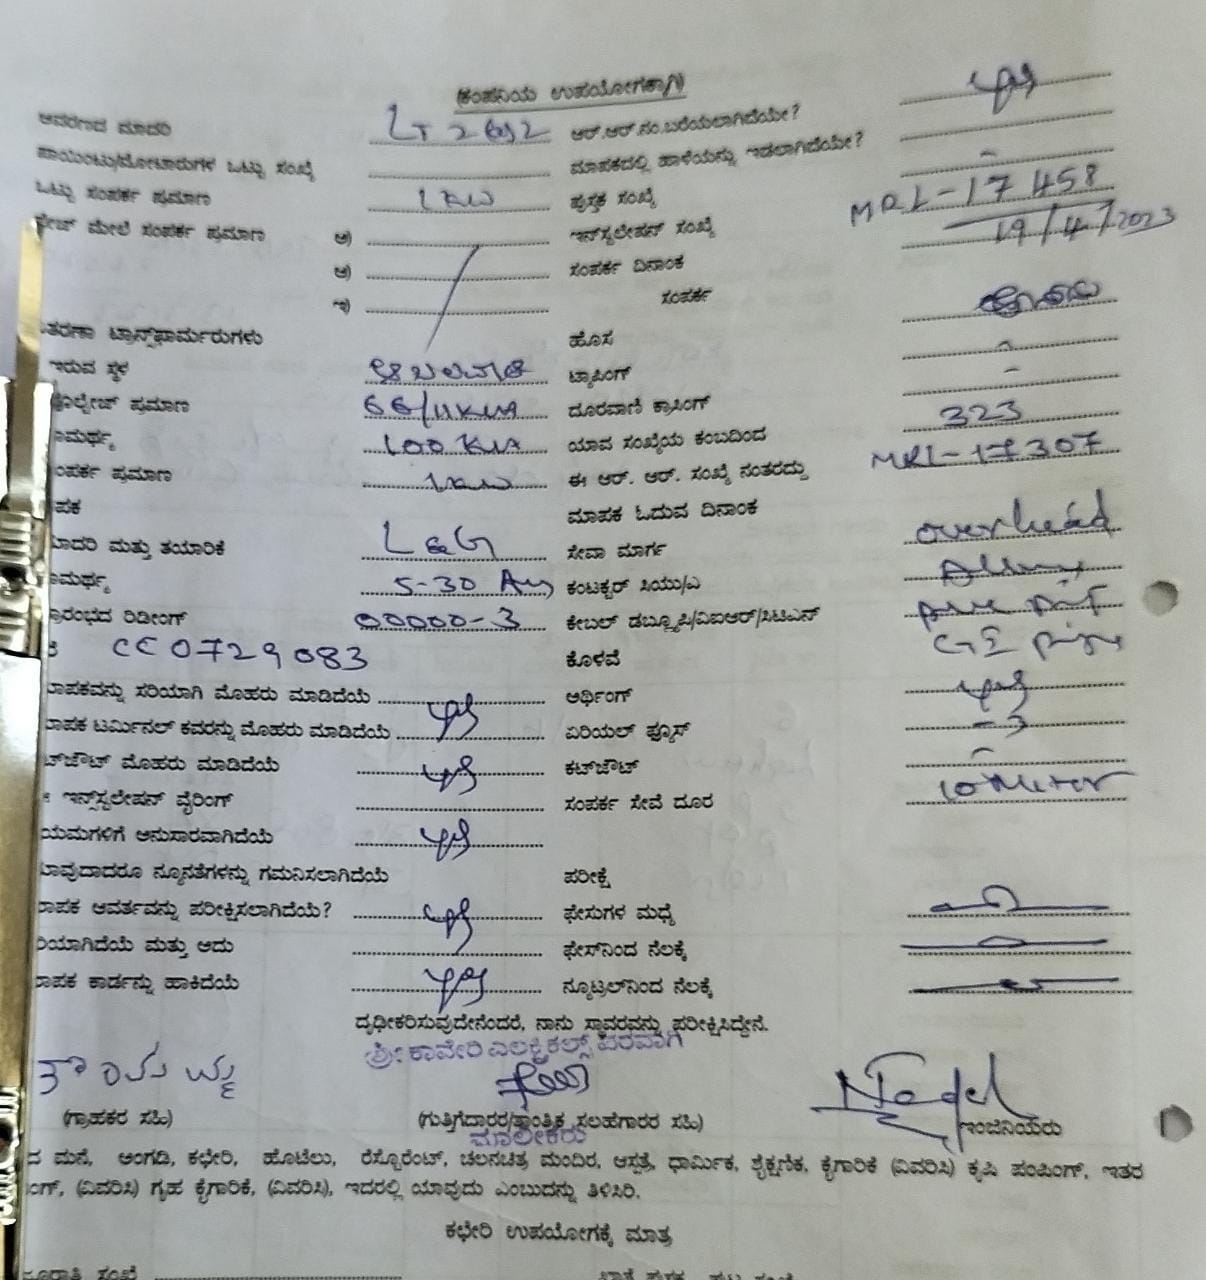 (ಕಂಪನಿಯ ಉಪಯೋಗಕ್ಕಾಗಿ)
ಆವರಣದ ಮಾದರಿ LT 2 ಆರ್.ಆರ್.ನಂ.ಬರೆಯಲಾಗಿದೆಯೇ? yes
ಪಾಯಿಂಟು/ಮೋಟಾರುಗಳ ಒಟ್ಟು ಸಂಖ್ಯೆ ಮಾಪಕದಲ್ಲಿ ಹಾಳೆಯನ್ನು ಇಡಲಾಗಿದೆಯೇ?
ಒಟ್ಟು ಸಂಪರ್ಕ ಪ್ರಮಾಣ 1KW ಪುಸ್ತಕ ಸಂಖ್ಯೆ -
ಫೇಜ್ ಮೇಲೆ ಸಂಪರ್ಕ ಪ್ರಮಾಣ ಅ) ಇನ್‌ಸ್ಟಲೇಷನ್ ಸಂಖ್ಯೆ MRL-17458
ಆ) ಸಂಪರ್ಕ ದಿನಾಂಕ 19/4/2023
ಇ) ಸಂಪರ್ಕ
ತರಣಾ ಟ್ರಾನ್ಸ್‌ಫಾರ್ಮರುಗಳು ಹೊಸ
ಇರುವ ಸ್ಥಳ ಟ್ಯಾಪಿಂಗ್ -
ವೋಲ್ಟೇಜ್ ಪ್ರಮಾಣ 66/11KVA ದೂರವಾಣಿ ಕ್ರಾಸಿಂಗ್ -
ಾಮರ್ಥ್ಯ 100 KVA ಯಾವ ಸಂಖ್ಯೆಯ ಕಂಬದಿಂದ 323
ಂಪರ್ಕ ಪ್ರಮಾಣ 1KW ಈ ಆರ್. ಆರ್. ಸಂಖ್ಯೆ ನಂತರದ್ದು MRL-17307
ಪಕ ಮಾಪಕ ಓದುವ ದಿನಾಂಕ
ಾದರಿ ಮತ್ತು ತಯಾರಿಕೆ L&G ಸೇವಾ ಮಾರ್ಗ overhead
ಾಮರ್ಥ್ಯ 5-30 Am ಕಂಟಕ್ಟರ್ ಸಿಯು/ಎ
್ರಾರಂಭದ ರಿಡೀಂಗ್ 00000-3 ಕೇಬಲ್ ಡಬ್ಲ್ಯೂಪಿ/ವಿಐಆರ್/ಸಿಟಿಎಸ್
CE0729083 ಕೊಳವೆ GI pipe
ಾಪಕವನ್ನು ಸರಿಯಾಗಿ ಮೊಹರು ಮಾಡಿದೆಯೆ yes ಅರ್ಥಿಂಗ್ yes
ಾಪಕ ಟರ್ಮಿನಲ್ ಕವರನ್ನು ಮೊಹರು ಮಾಡಿದೆಯೆ ಏರಿಯಲ್ ಫ್ಯೂಸ್ -3
ಟ್‌ಔಟ್ ಮೊಹರು ಮಾಡಿದೆಯೆ yes ಕಟ್‌ಔಟ್ -
ಇನ್‌ಸ್ಟಲೇಷನ್ ವೈರಿಂಗ್ ಸಂಪರ್ಕ ಸೇವೆ ದೂರ 10 Meter
ಯಮಗಳಿಗೆ ಅನುಸಾರವಾಗಿದೆಯೆ yes
ಾವುದಾದರೂ ನ್ಯೂನತೆಗಳನ್ನು ಗಮನಿಸಲಾಗಿದೆಯೆ ಪರೀಕ್ಷೆ
ಾಪಕ ಆವರ್ತವನ್ನು ಪರೀಕ್ಷಿಸಲಾಗಿದೆಯೆ? yes ಫೇಸುಗಳ ಮಧ್ಯೆ
ರಿಯಾಗಿದೆಯೆ ಮತ್ತು ಅದು ಫೇಸ್‌ನಿಂದ ನೆಲಕ್ಕೆ
ಾಪಕ ಕಾರ್ಡನ್ನು ಹಾಕಿದೆಯೆ yes ನ್ಯೂಟ್ರಲ್‌ನಿಂದ ನೆಲಕ್ಕೆ
ದೃಢೀಕರಿಸುವುದೇನೆಂದರೆ, ನಾನು ಸ್ಥಾವರವನ್ನು ಪರೀಕ್ಷಿಸಿದ್ದೇನೆ.
ಶ್ರೀ ಕಾವೇರಿ ಎಲಕ್ಟ್ರಿಕಲ್ಸ್ ಪರವಾಗಿ
(ಗ್ರಾಹಕರ ಸಹಿ) (ಗುತ್ತಿಗೆದಾರರ/ತಾಂತ್ರಿಕ ಸಲಹೆಗಾರರ ಸಹಿ) ಇಂಜಿನಿಯರು
ಮಾಲೀಕರು
ದ ಮನೆ, ಅಂಗಡಿ, ಕಛೇರಿ, ಹೊಟೆಲು, ರೆಸ್ಟೊರೆಂಟ್, ಚಲನಚಿತ್ರ ಮಂದಿರ, ಆಸ್ಪತ್ರೆ, ಧಾರ್ಮಿಕ, ಶೈಕ್ಷಣಿಕ, ಕೈಗಾರಿಕೆ (ವಿವರಿಸಿ) ಕೃಷಿ ಪಂಪಿಂಗ್, ಇತರ
ಂಗ್, (ವಿವರಿಸಿ) ಗೃಹ ಕೈಗಾರಿಕೆ, (ವಿವರಿಸಿ), ಇದರಲ್ಲಿ ಯಾವುದು ಎಂಬುದನ್ನು ತಿಳಿಸಿರಿ.
ಕಛೇರಿ ಉಪಯೋಗಕ್ಕೆ ಮಾತ್ರ